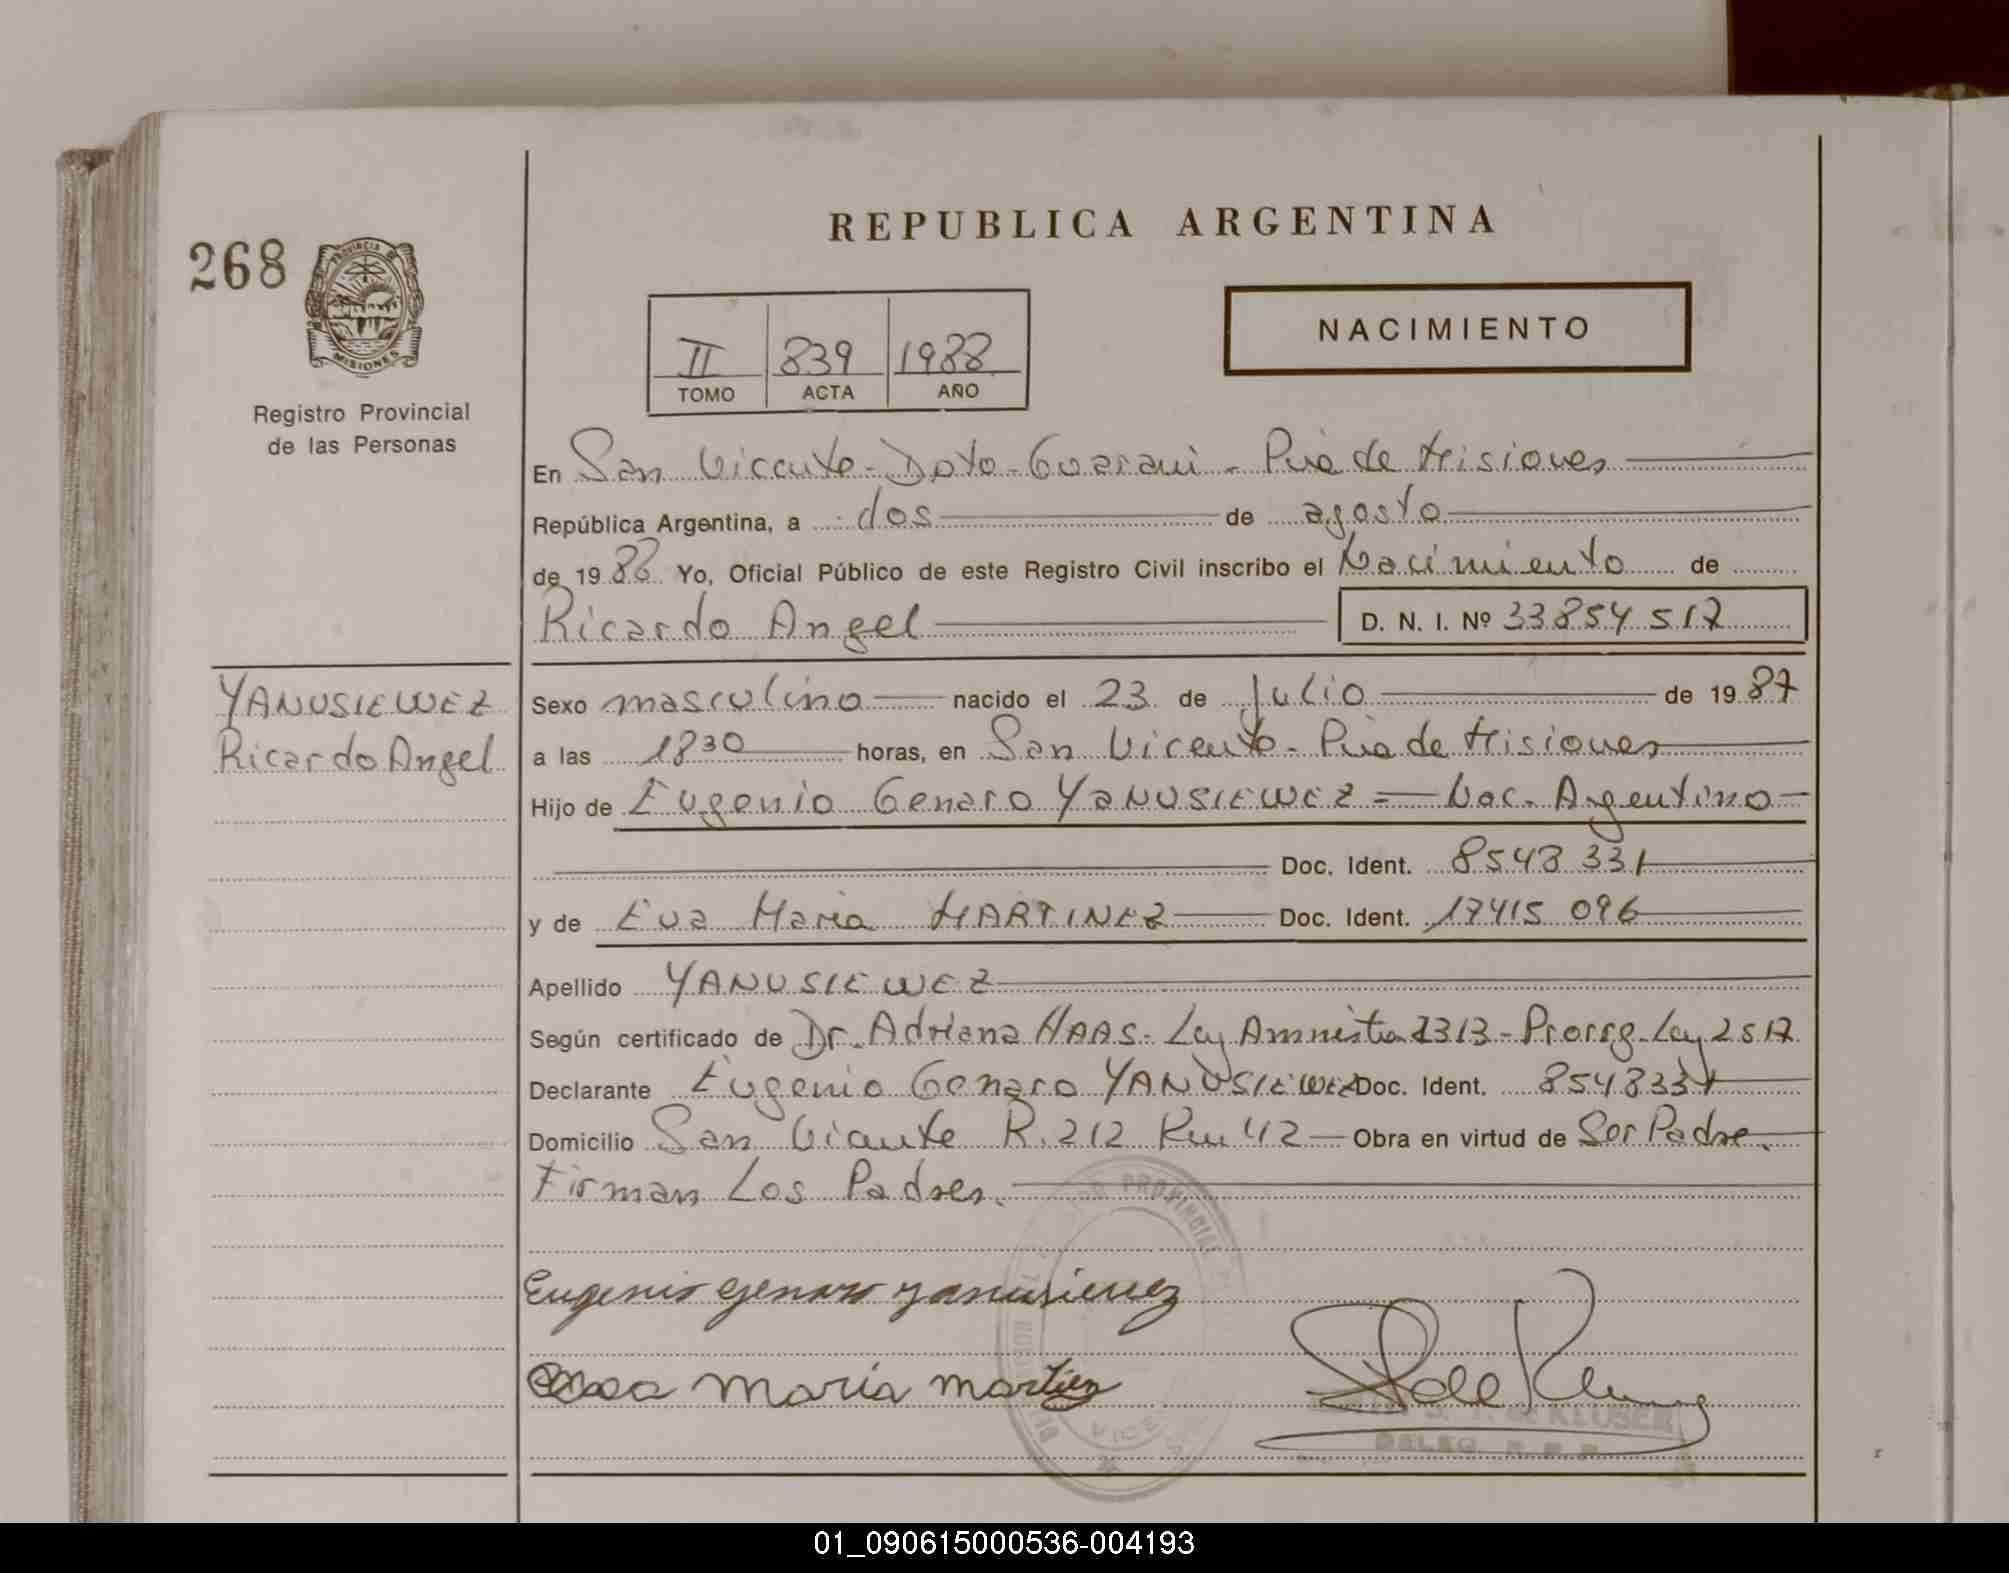 REPUBLICA ARGENTINA
268
PROVINCIA DE MISIONES
NACIMIENTO
II 839 1988
TOMO ACTA AÑO
Registro Provincial
de las Personas
En San Vicente - Dpto - Guarani - Pcia de Misiones
República Argentina, a dos de agosto
de 1988 Yo, Oficial Público de este Registro Civil inscribo el Nacimiento de
Ricardo Angel D. N. I. Nº 33854517
YANUSIEWEZ
Ricardo Angel
Sexo masculino nacido el 23 de Julio de 1987
a las 1830 horas, en San Vicente - Pcia de Misiones
Hijo de Eugenio Genaro YANUSIEWEZ = Nac. Argentino
Doc. Ident. 8548331
y de Eva Maria MARTINEZ Doc. Ident. 17415096
Apellido YANUSIEWEZ
Según certificado de Dr. Adriana HAAS - Ley Amnistia 2313 - Prorrg. Ley 2517
Declarante Eugenio Genaro YANUSIEWEZ Doc. Ident. 8548331
Domicilio San Vicente R. 212 Km 42 Obra en virtud de Ser Padre.
Firman Los Padres.
Eugenio Genaro Yanusiewez
Eva María Martiez
de KLUSER
DELEG. R. P. P.
01_090615000536-004193